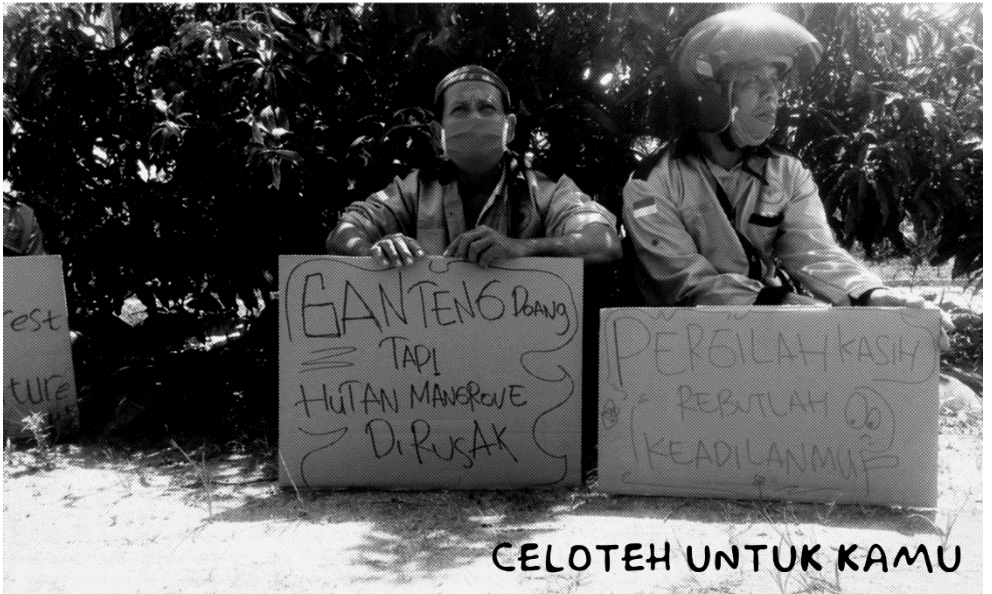 est
ture
GANTENG DOANG
TAPI
HUTAN MANGROVE
DIRUSAK
PERGILAH KASIH
REBUTLAH
KEADILANMU
CELOTEH UNTUK KAMU